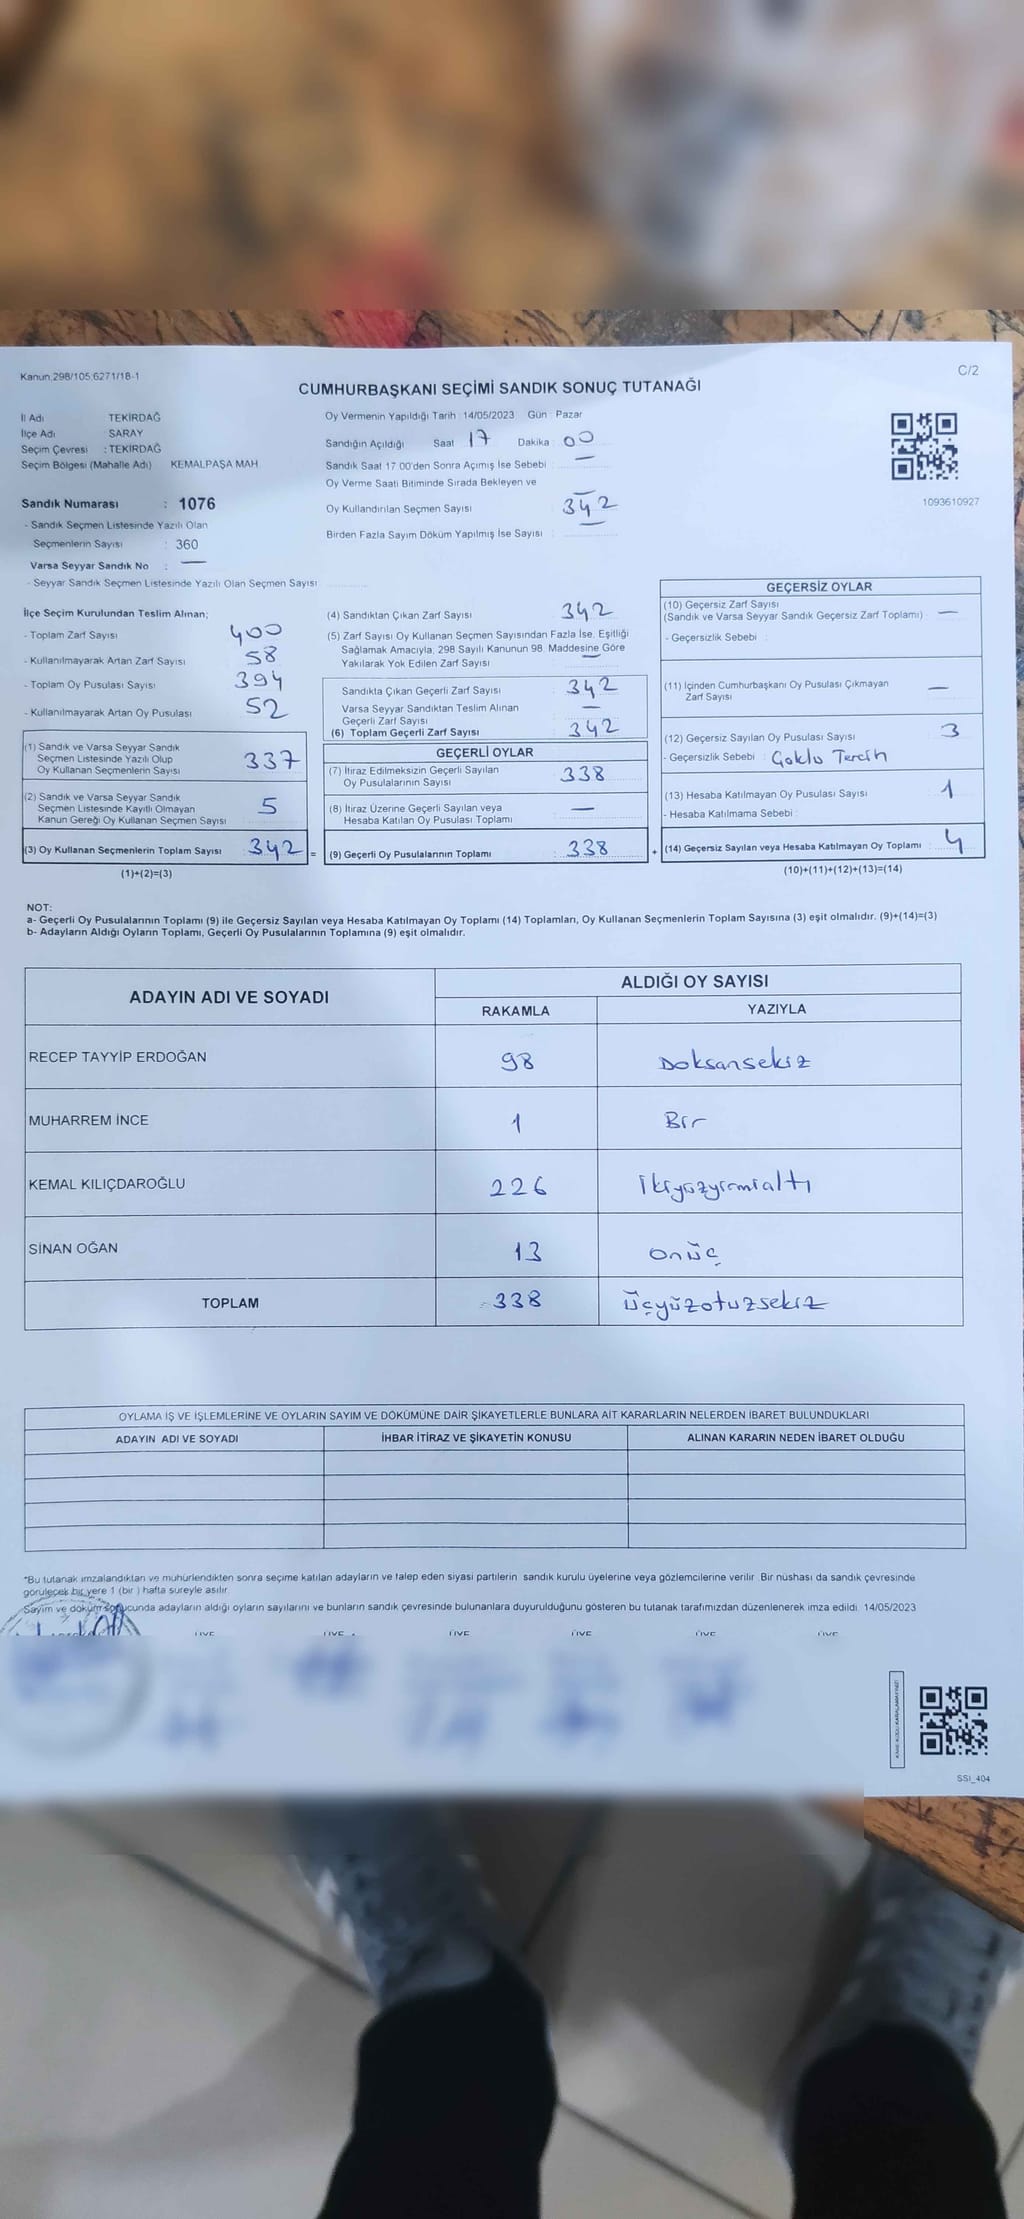 Kanun:298/105,6271/18-1
C/2
CUMHURBAŞKANI SEÇİMİ SANDIK SONUÇ TUTANAĞI
İl Adı TEKİRDAĞ
İlçe Adı SARAY
Seçim Çevresi : TEKİRDAĞ
Seçim Bölgesi (Mahalle Adı) KEMALPAŞA MAH
Sandık Numarası : 1076
- Sandık Seçmen Listesinde Yazılı Olan
Seçmenlerin Sayısı : 360
Varsa Seyyar Sandık No : —
- Seyyar Sandık Seçmen Listesinde Yazılı Olan Seçmen Sayısı
Oy Vermenin Yapıldığı Tarih : 14/05/2023 Gün : Pazar
Sandığın Açıldığı Saat 17 Dakika : 00
Sandık Saat 17 00'den Sonra Açımış İse Sebebi : —
Oy Verme Saati Bitiminde Sırada Bekleyen ve
Oy Kullandırılan Seçmen Sayısı : 342
Birden Fazla Sayım Döküm Yapılmış İse Sayısı : —
1093610927
İlçe Seçim Kurulundan Teslim Alınan;
- Toplam Zarf Sayısı 400
- Kullanılmayarak Artan Zarf Sayısı 58
- Toplam Oy Pusulası Sayısı 394
- Kullanılmayarak Artan Oy Pusulası 52
(1) Sandık ve Varsa Seyyar Sandık
Seçmen Listesinde Yazılı Olup
Oy Kullanan Seçmenlerin Sayısı 337
(2) Sandık ve Varsa Seyyar Sandık
Seçmen Listesinde Kayıtlı Olmayan
Kanun Gereği Oy Kullanan Seçmen Sayısı 5
(3) Oy Kullanan Seçmenlerin Toplam Sayısı : 342 =
(1)+(2)=(3)
(4) Sandıktan Çıkan Zarf Sayısı 342
(5) Zarf Sayısı Oy Kullanan Seçmen Sayısından Fazla İse, Eşitliği
Sağlamak Amacıyla, 298 Sayılı Kanunun 98. Maddesine Göre
Yakılarak Yok Edilen Zarf Sayısı —
Sandıkta Çıkan Geçerli Zarf Sayısı 342
Varsa Seyyar Sandıktan Teslim Alınan
Geçerli Zarf Sayısı —
(6) Toplam Geçerli Zarf Sayısı 342
GEÇERLİ OYLAR
(7) İtiraz Edilmeksizin Geçerli Sayılan
Oy Pusulalarının Sayısı 338
(8) İtiraz Üzerine Geçerli Sayılan veya
Hesaba Katılan Oy Pusulası Toplamı —
(9) Geçerli Oy Pusulalarının Toplamı : 338 +
GEÇERSİZ OYLAR
(10) Geçersiz Zarf Sayısı
(Sandık ve Varsa Seyyar Sandık Geçersiz Zarf Toplamı) —
- Geçersizlik Sebebi :
(11) İçinden Cumhurbaşkanı Oy Pusulası Çıkmayan
Zarf Sayısı —
(12) Geçersiz Sayılan Oy Pusulası Sayısı 3
- Geçersizlik Sebebi : Çoklu Tercih
(13) Hesaba Katılmayan Oy Pusulası Sayısı 1
- Hesaba Katılmama Sebebi :
(14) Geçersiz Sayılan veya Hesaba Katılmayan Oy Toplamı : 4
(10)+(11)+(12)+(13)=(14)
NOT:
a- Geçerli Oy Pusulalarının Toplamı (9) ile Geçersiz Sayılan veya Hesaba Katılmayan Oy Toplamı (14) Toplamları, Oy Kullanan Seçmenlerin Toplam Sayısına (3) eşit olmalıdır. (9)+(14)=(3)
b- Adayların Aldığı Oyların Toplamı, Geçerli Oy Pusulalarının Toplamına (9) eşit olmalıdır.
ADAYIN ADI VE SOYADI ALDIĞI OY SAYISI
RAKAMLA YAZIYLA
RECEP TAYYİP ERDOĞAN 98 Doksansekiz
MUHARREM İNCE 1 Bir
KEMAL KILIÇDAROĞLU 226 İkiyüzyirmialtı
SİNAN OĞAN 13 onüç
TOPLAM 338 üçyüzotuzsekiz
OYLAMA İŞ VE İŞLEMLERİNE VE OYLARIN SAYIM VE DÖKÜMÜNE DAİR ŞİKAYETLERLE BUNLARA AİT KARARLARIN NELERDEN İBARET BULUNDUKLARI
ADAYIN ADI VE SOYADI İHBAR İTİRAZ VE ŞİKAYETİN KONUSU ALINAN KARARIN NEDEN İBARET OLDUĞU
*Bu tutanak imzalandıktan ve mühürlendikten sonra seçime katılan adayların ve talep eden siyasi partilerin sandık kurulu üyelerine veya gözlemcilerine verilir. Bir nüshası da sandık çevresinde
görülecek bir yere 1 (bir ) hafta süreyle asılır.
Sayım ve döküm sonucunda adayların aldığı oyların sayılarını ve bunların sandık çevresinde bulunanlara duyurulduğunu gösteren bu tutanak tarafımızdan düzenlenerek imza edildi. 14/05/2023
ÜYE ÜYE ÜYE ÜYE ÜYE ÜYE
SSI_404